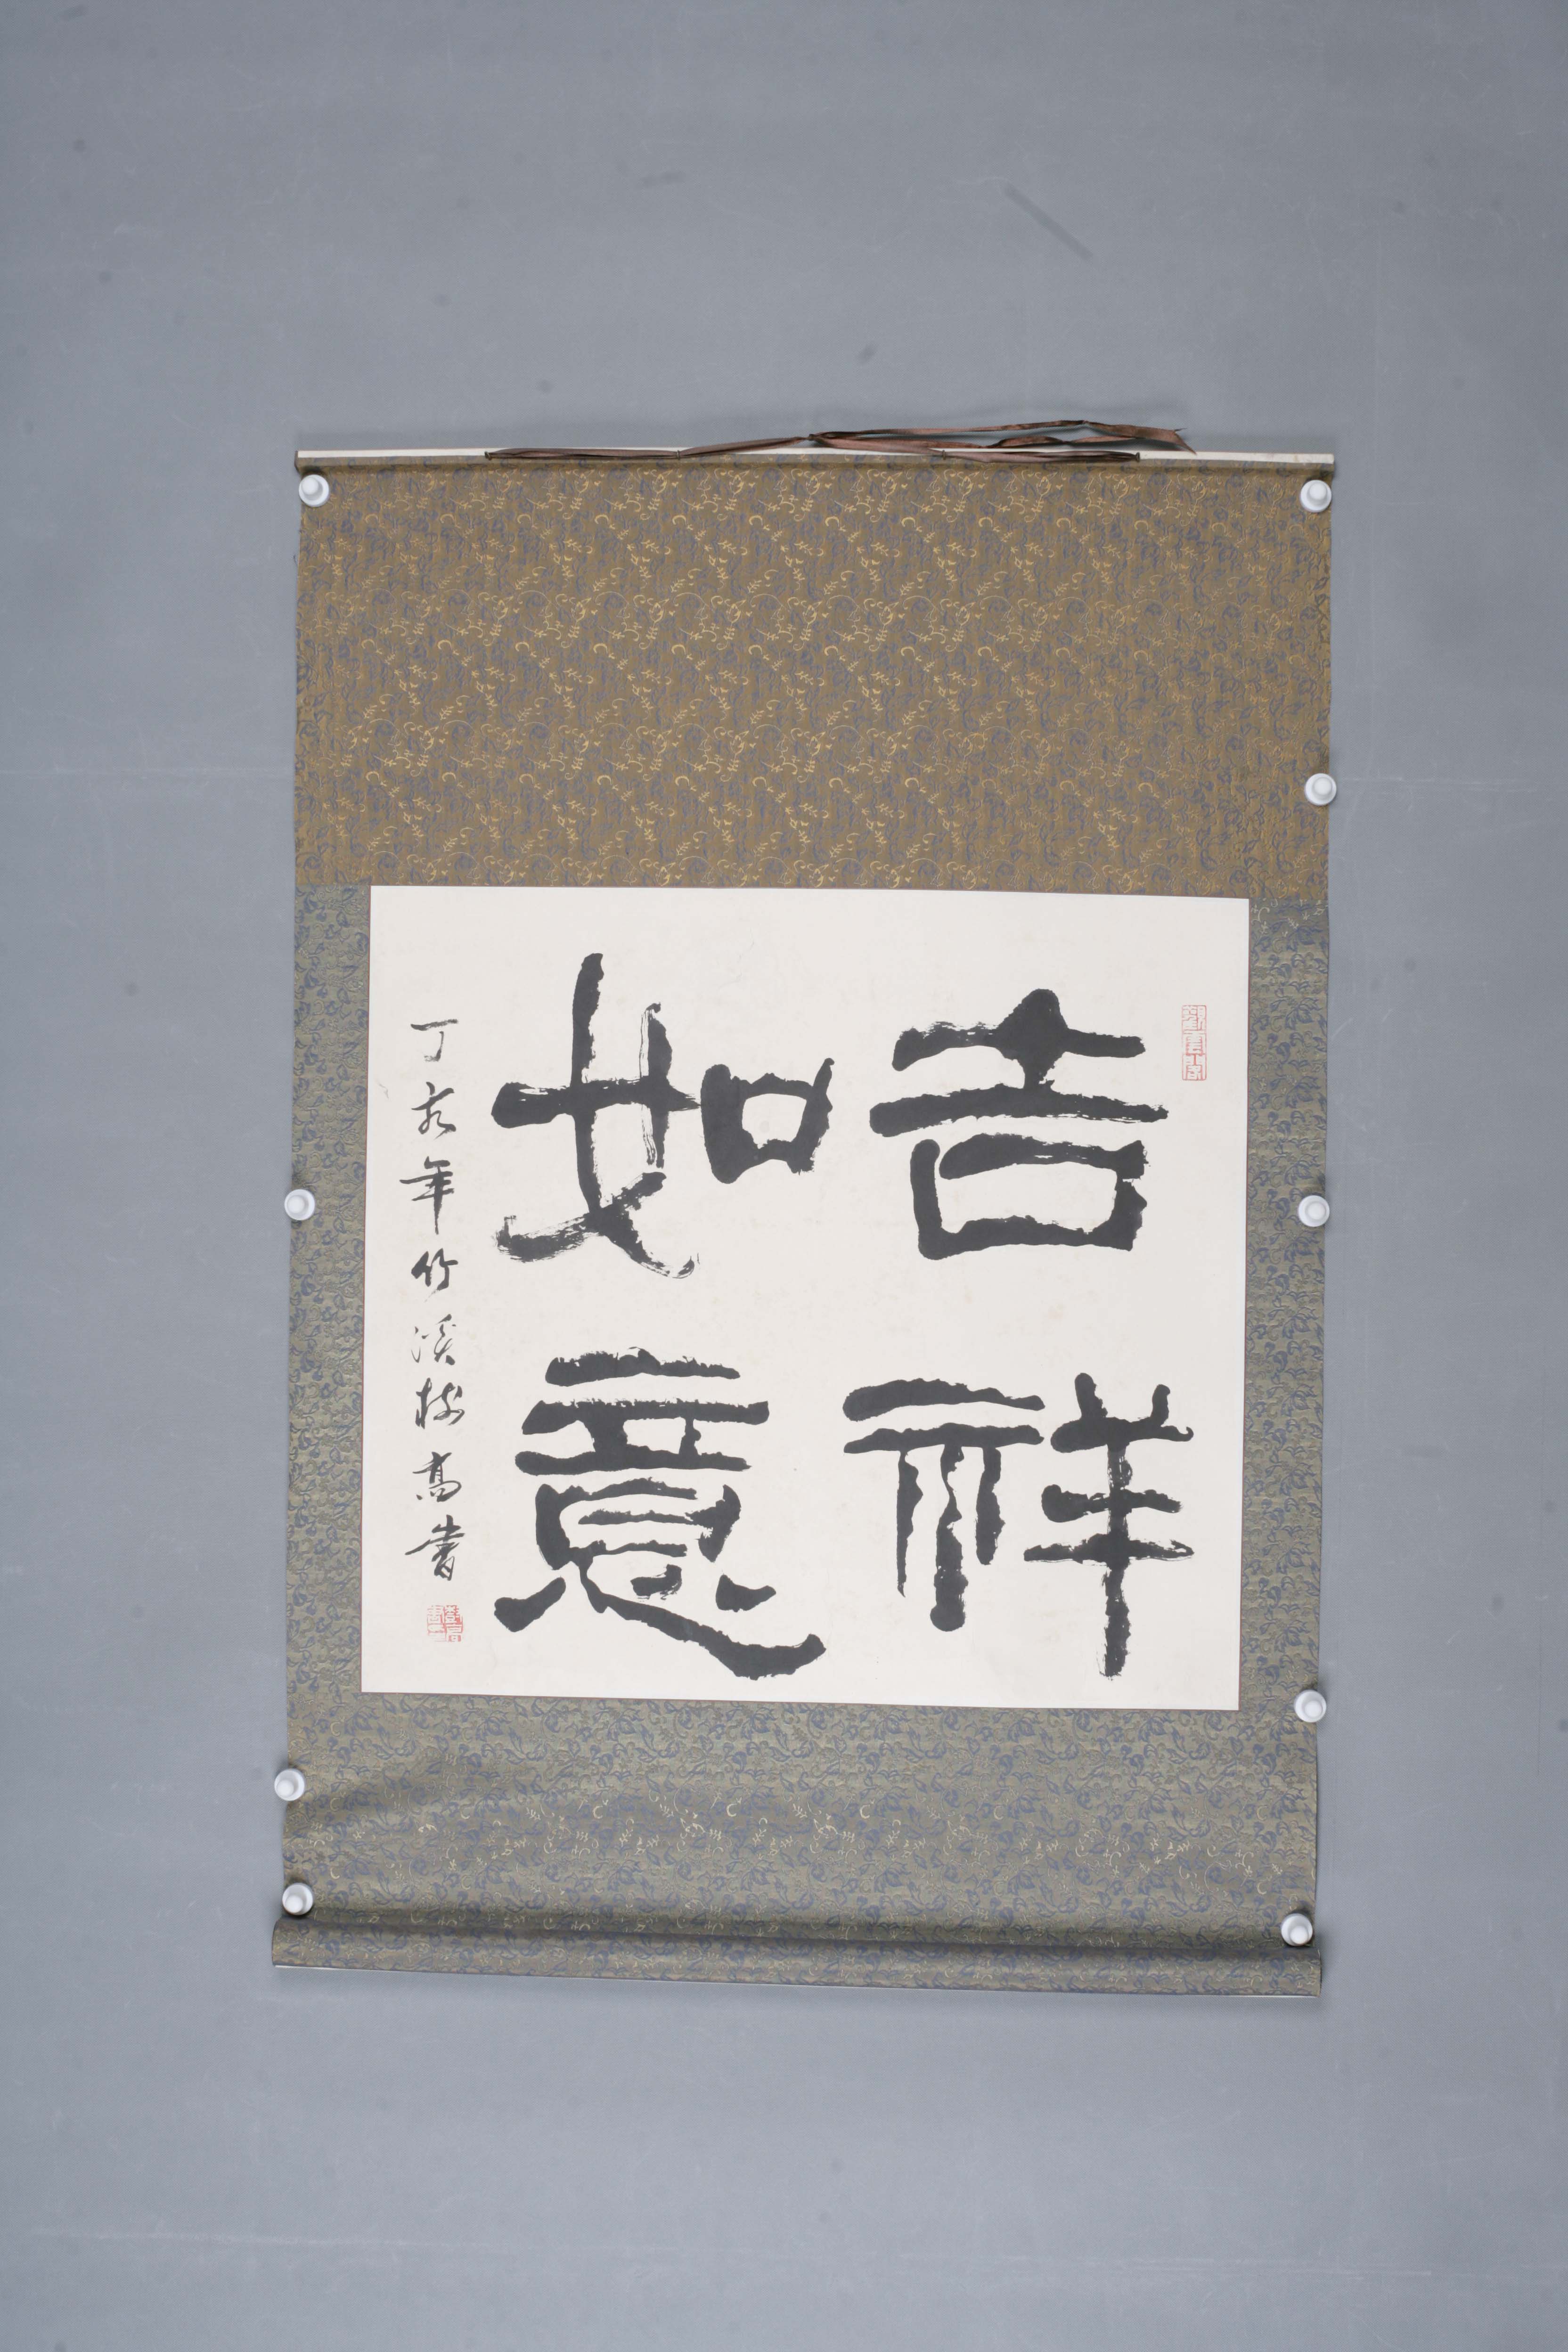 吉祥
如意
丁亥年竹溪樹高書